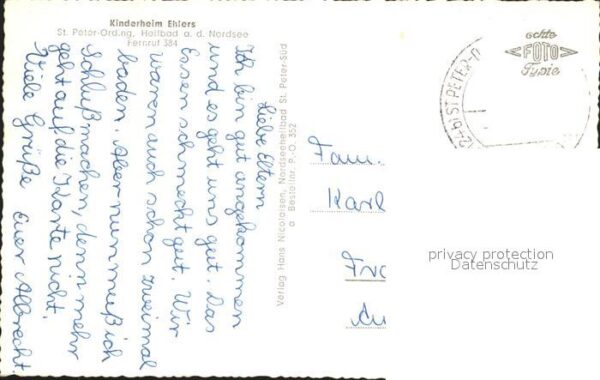 Kinderheim Ehlers
St. Peter-Ording, Heilbad a. d. Nordsee
Fernruf 384
Liebe Eltern
Ich bin gut angekommen
und es geht uns gut. Das
Essen schmeckt gut. Wir
waren auch schon zweimal
baden. Aber nun muß ich
Schluß machen, denn mehr
geht auf die Karte nicht.
Viele Grüße Euer Albrecht.
Verlag Hans Nicolaisen, Nordseeheilbad St. Peter-Süd
a Bestellnr. P. O. 352
echte
FOTO
Typie
(24b) ST PETER-O
Fam.
Karl
privacy protection
Datenschutz